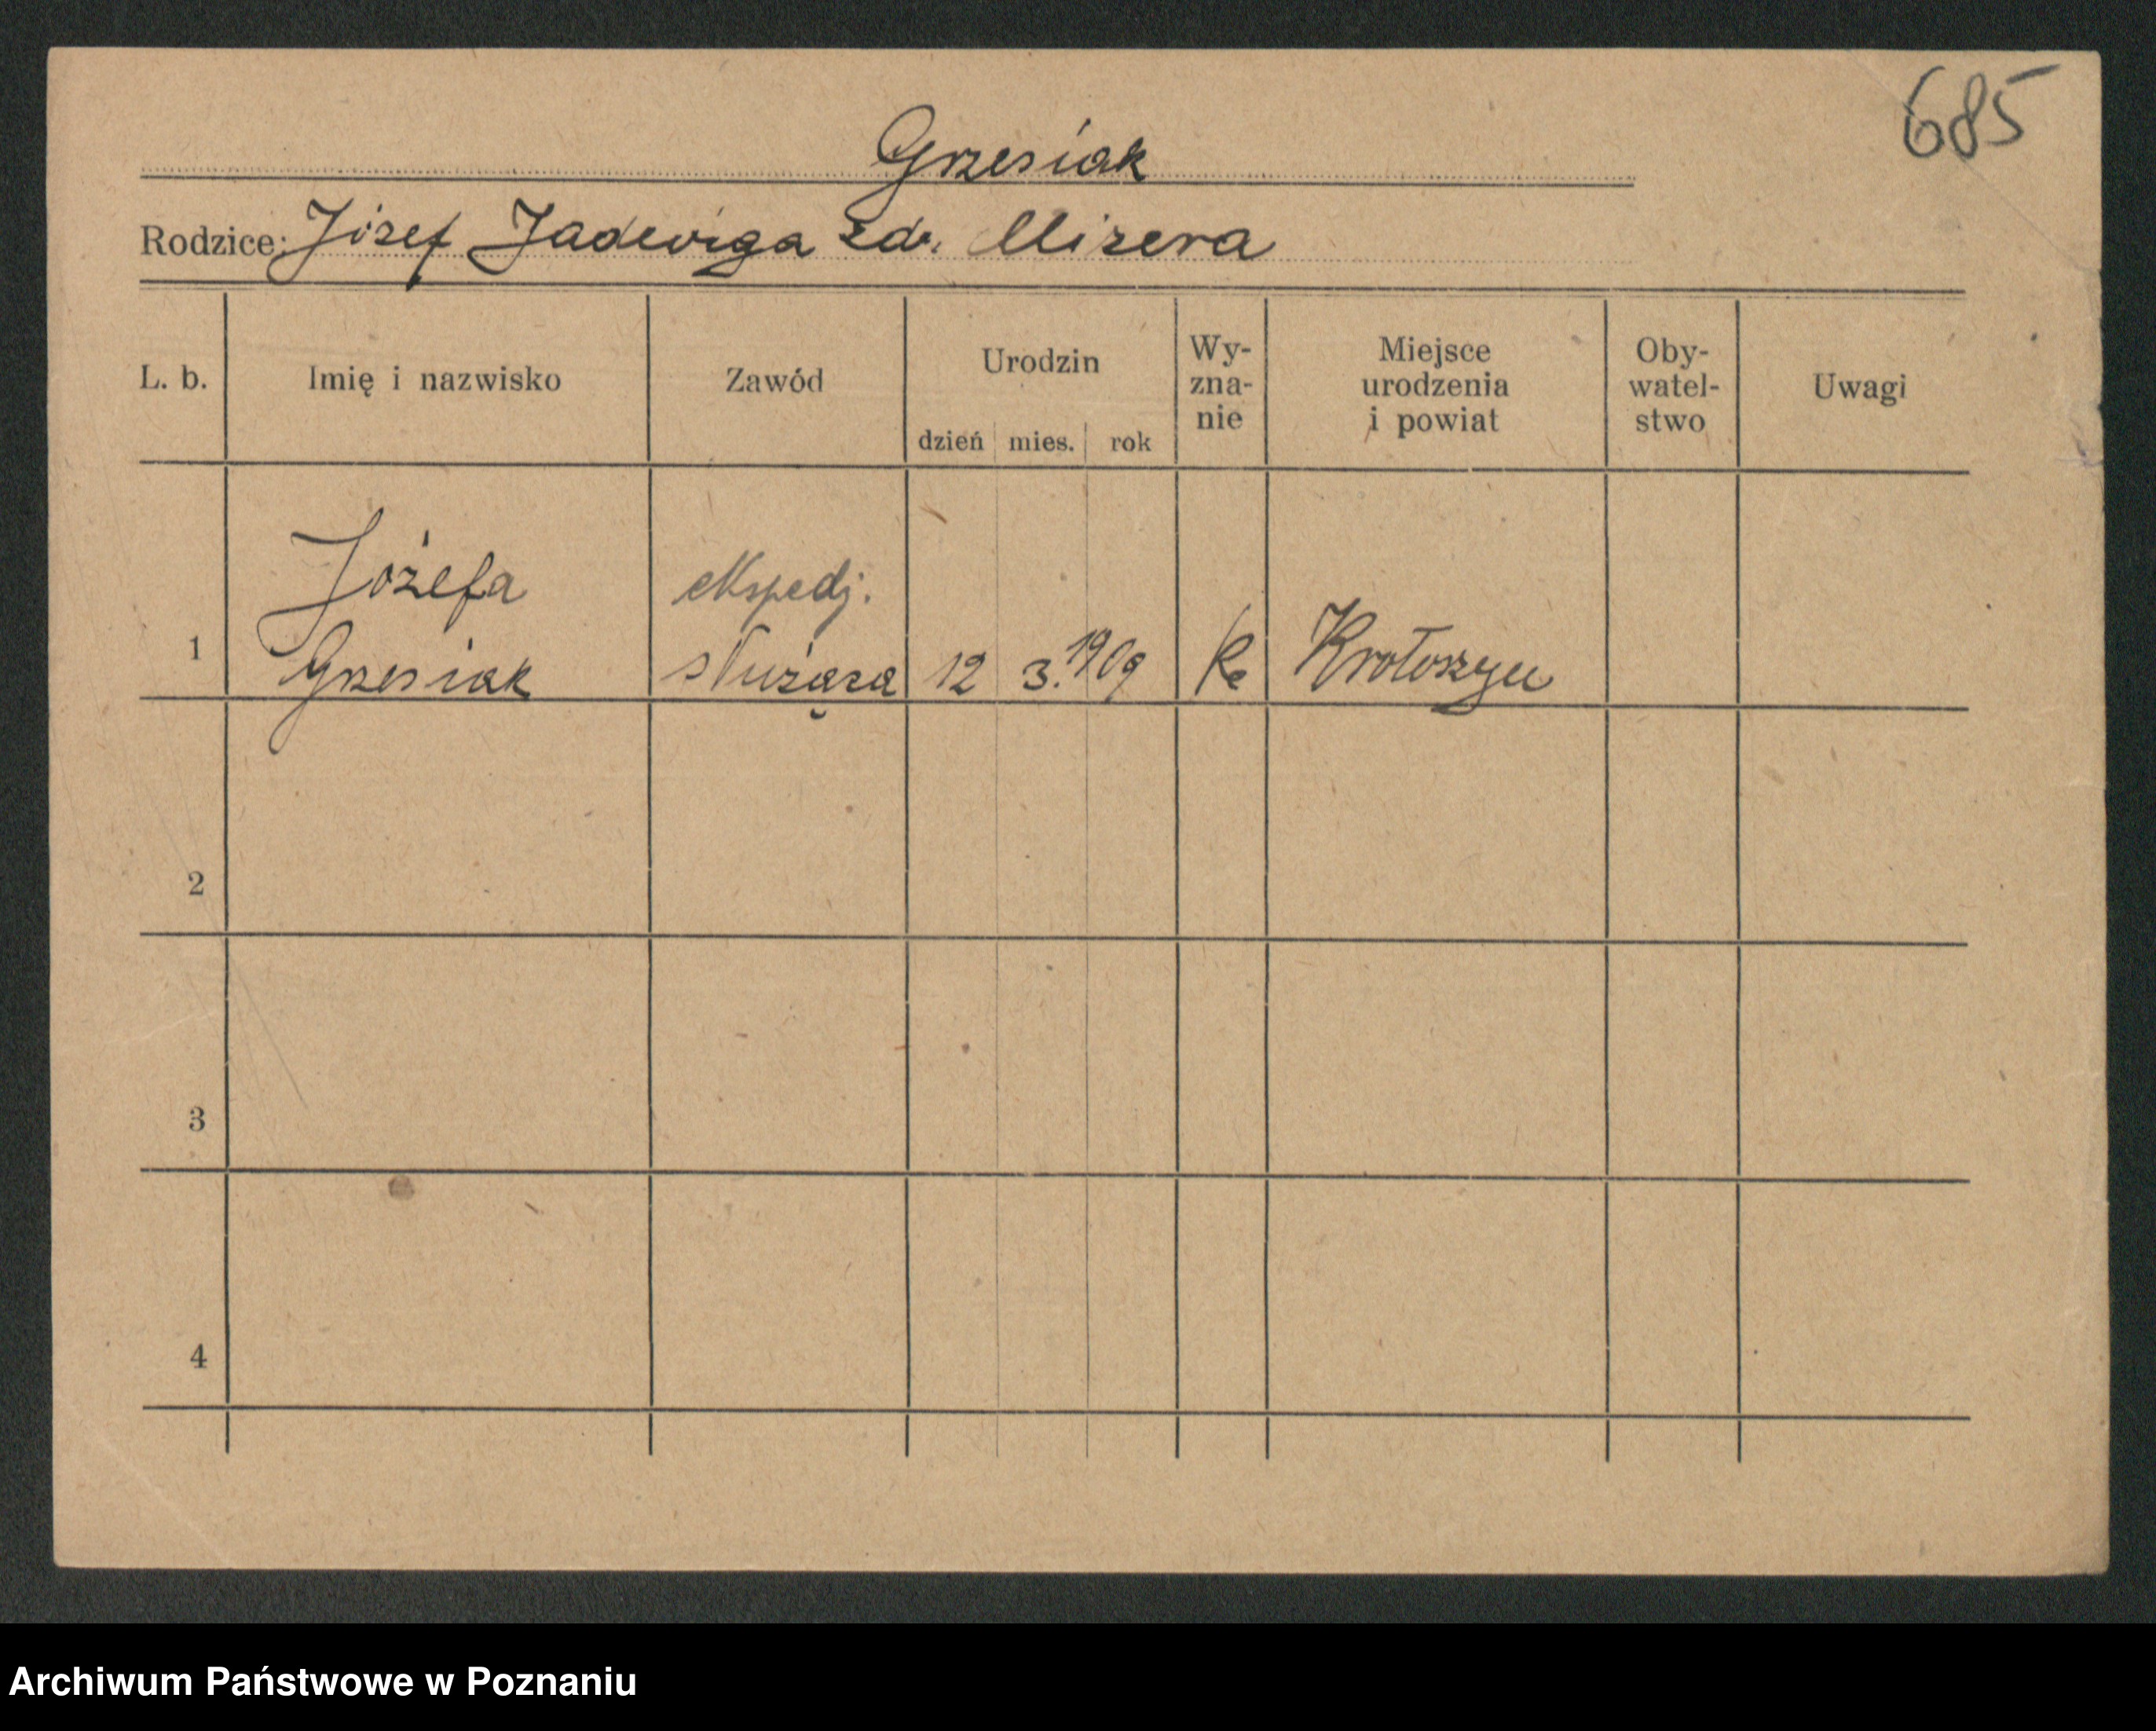 685
Grzesiak
Rodzice: Józef Jadwiga zd. Mizera
L. b. Imię i nazwisko Zawód Urodzin dzień mies. rok Wy-zna-nie Miejsce urodzenia i powiat Oby-watel-stwo Uwagi
Józefa ekspedj.
1 Grzesiak służąca 12 3. 1909 Rk Krotoszyn
2
3
4
Archiwum Państwowe w Poznaniu